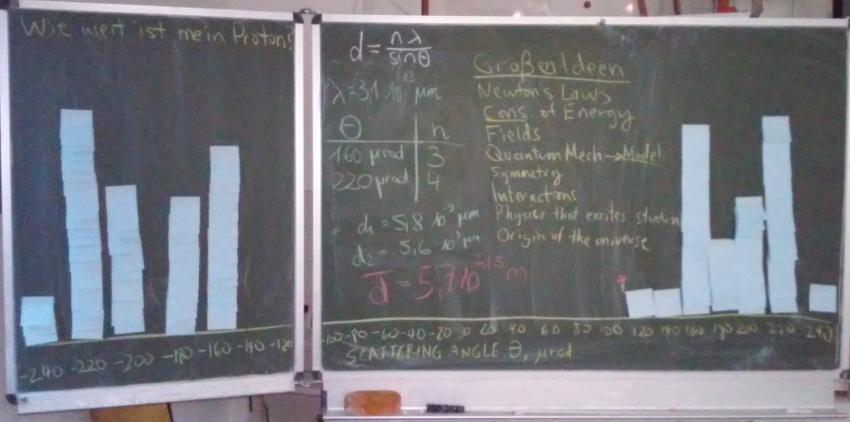 Wie wert ist mein Proton?
-240 -220 -200 -180 -160 -140 -120
d = nλ / sinθ
λ = 3,1 10⁻¹³ μm
θ n
160 μrad 3
220 μrad 4
d₁ = 5,8 10⁻⁹ μm
d₂ = 5,6 10⁻⁹ μm
d̄ = 5,7 10⁻¹⁵ m
Großen Ideen
Newtons Laws
Cons. of Energy
Fields
Quantum Mech → Model
Symmetry
Interactions
Physics that excites studen
Origin of the universe
-100 -80 -60 -40 -20 0 20 40 60 80 100 120 140 160 180 200 220 240
SCATTERING ANGLE θ, μrad